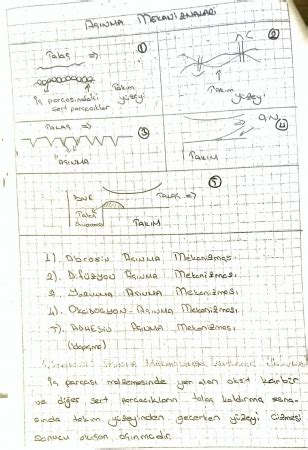 AŞINMA MEKANİZMALARI
Talaş ⇒
1
İş parçasındaki
sert parçacıklar
Takım
yüzeyi
2
C
Takım
yüzeyi
TALAŞ ⇒
3
AŞINMA
4
TAKIM
5
TALAŞ ⇒
Talaş
TAKIM
1). Abrosiv Aşınma Mekanizması
2). Difüzyon Aşınma Mekanizması
3). Yorulma Aşınma Mekanizması
4). Oksidasyon Aşınma Mekanizması
5). ADHESİV Aşınma Mekanizması
(Yapışma)
İş parçası malzemesinde yer alan oksit karbür
ve diğer sert parçacıkların talaş kaldırma esna-
sında takım yüzeyinden geçerken yüzeyi çizmesi
sonucu oluşan aşınmadır.